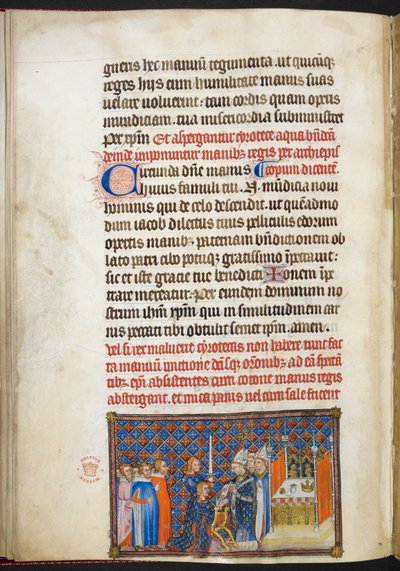 gneris hec manuū tegumenta. ut quicūq;
reges hijs cum humilitate manus suas
uelare uoluerint: tam cordis quam operis
mundiciam. tua misericordia subministret
Per xp̄m Et aspergantur cyrotece aqua bn̄dca
deinde imponuntur manibz regis per archiepis
Circunda dn̄e manus copum dicente.
huius famuli tui. N. mūdicia noui
hominis qui de celo descendit. ut quēadmo
dum iacob dilectus tuus pelliculis edorum
opertis manibz. paternam bn̄dictionem ob
lato patri cibo potuq; gratissimo īpetrauit:
sic et iste gracie tue benedicti onem īpe
trare mereatur. Per eundem dominum no
strum ih̄m xp̄m qui in similitudinem car
nis peccati tibi obtulit semet ipm̄. amen.
vel si rex maluerit cyrotecas non habere tunc fac
ta manuum unctione
abstergant. et mica panis uel cum sale fricent
BRITISH
MUSEUM